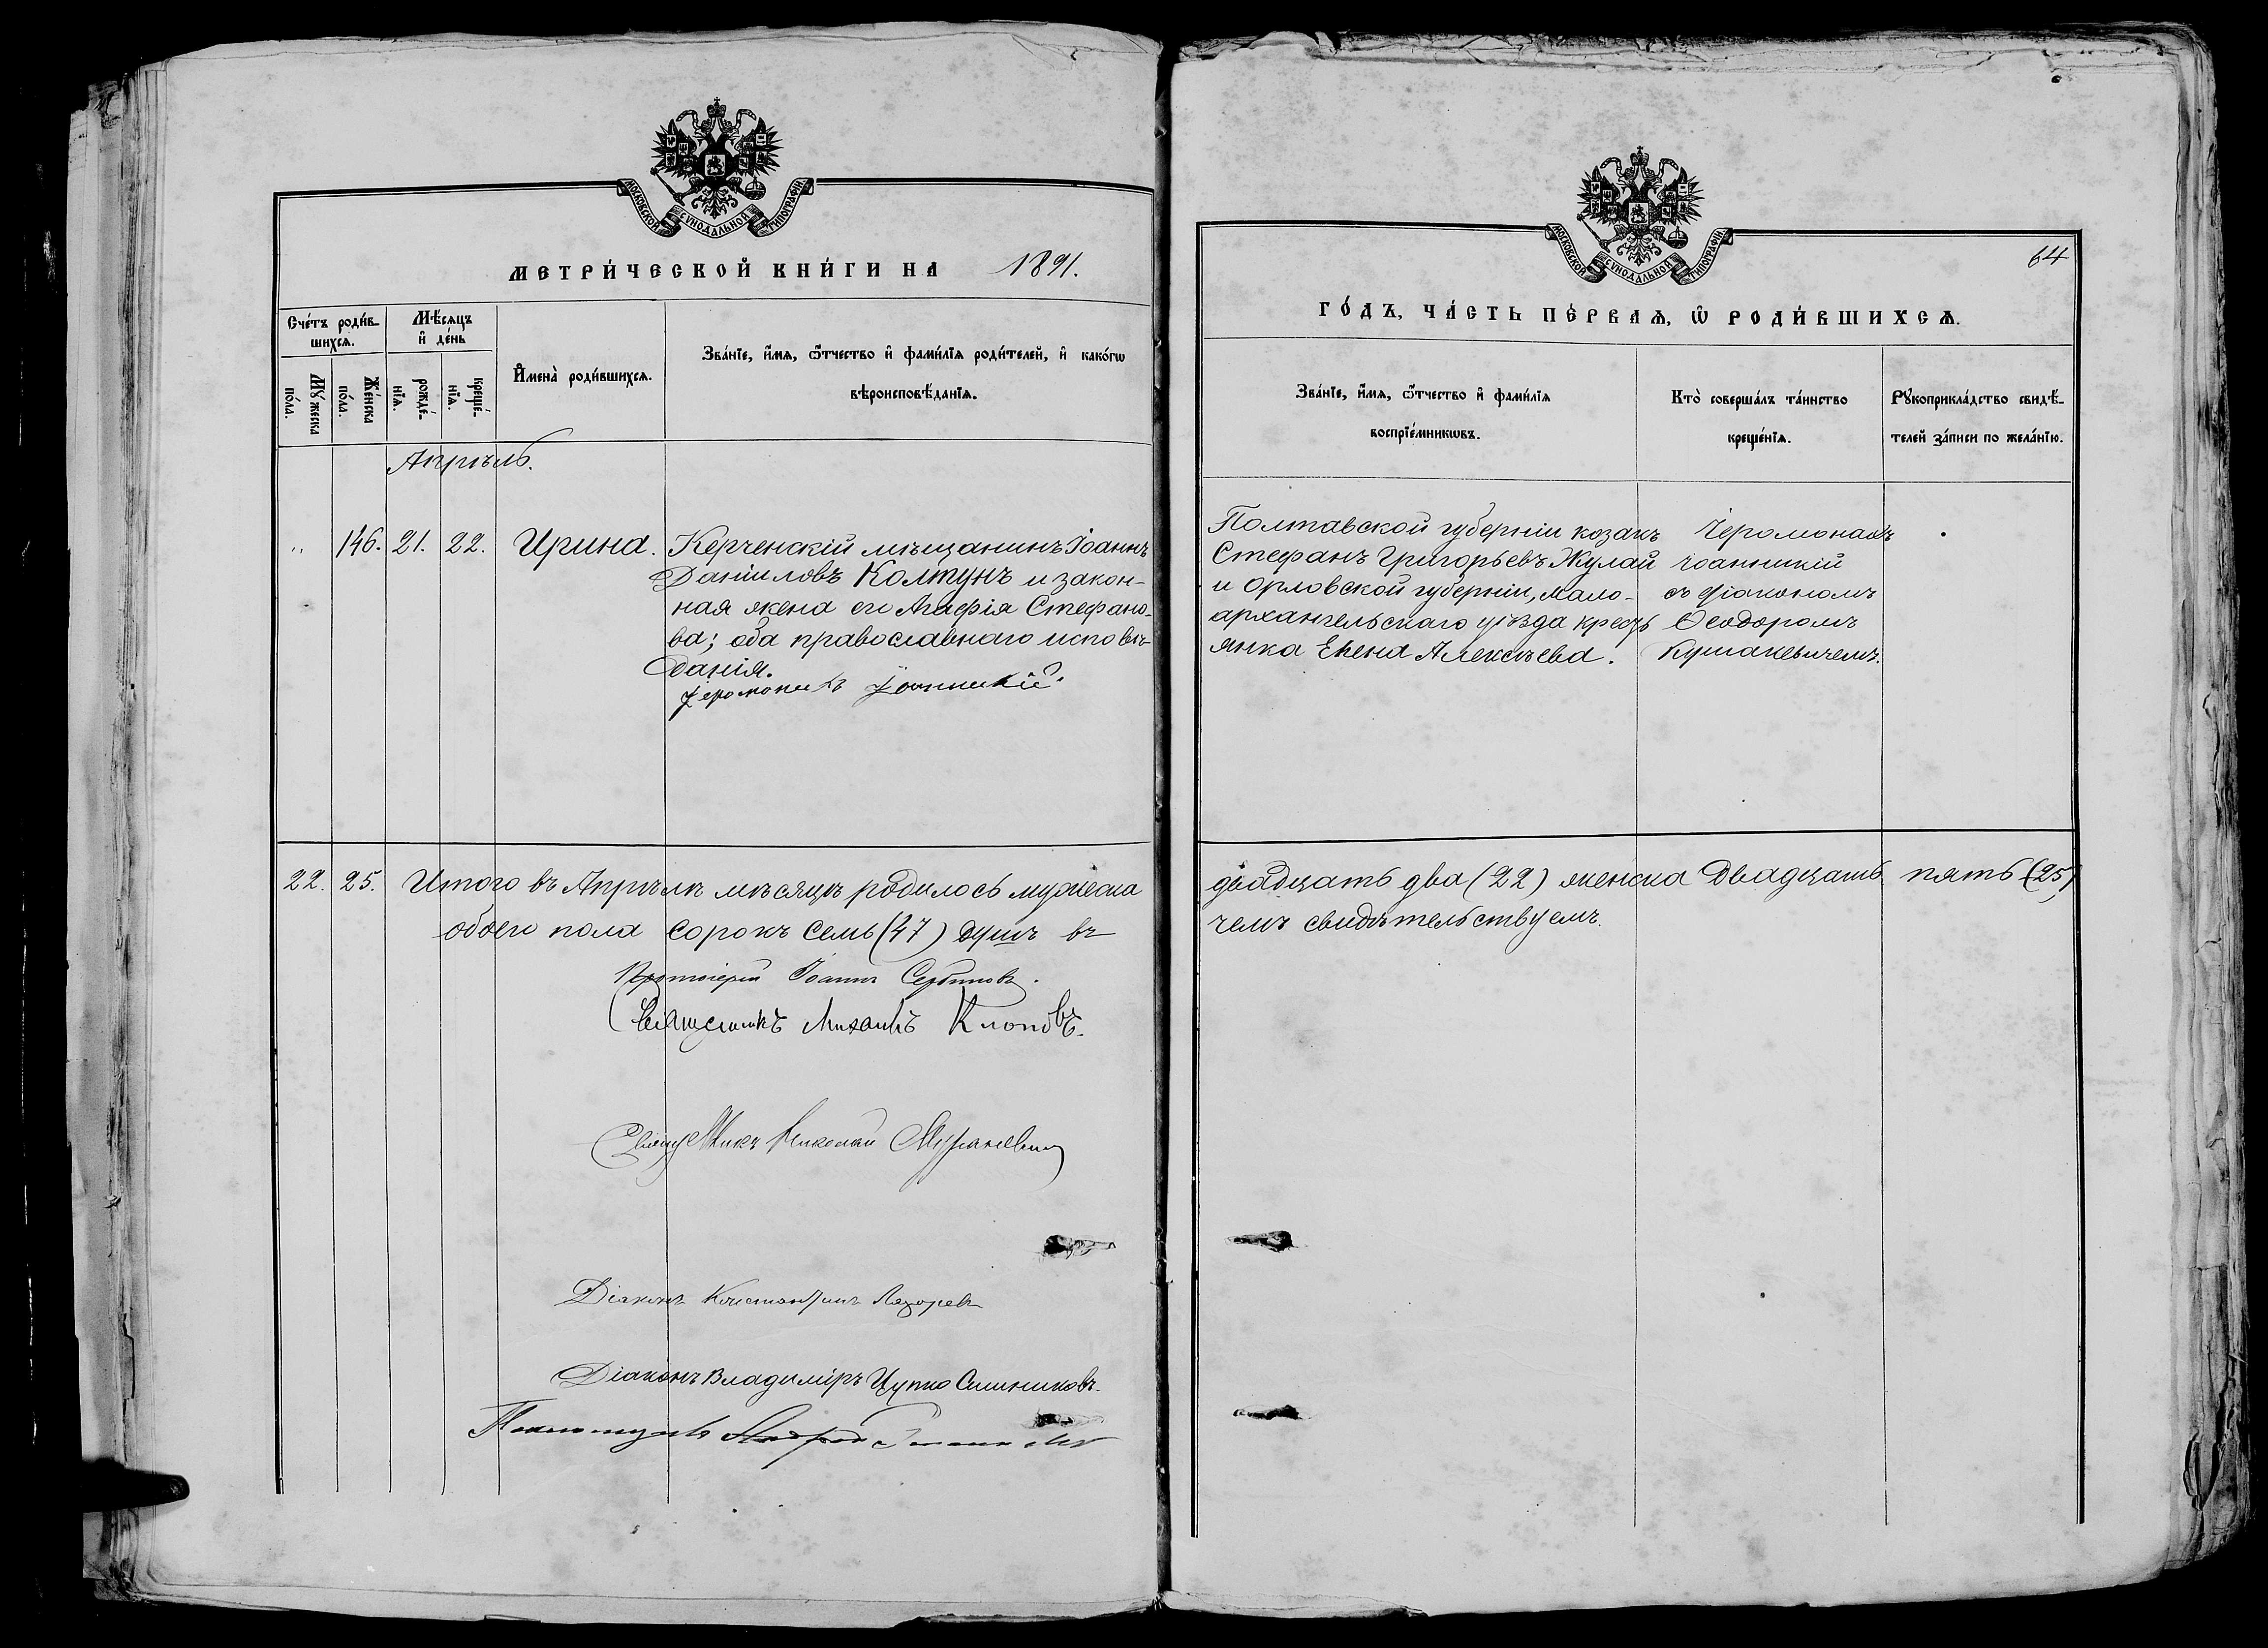 МОСКОВСКОЙ СѴНОДАЛЬНОЙ ТИПОГРАФІИ
МЕТРИ́ЧЕСКОЙ КНИ́ГИ НА 1891.
Сче́тъ роди́в-
шихсѧ.
Мѣ́сяцъ
и҆ де́нь
Мꙋ́жеска
по́ла.
Же́нска
по́ла.
рожде́-
нїѧ.
креще́-
нїѧ.
И҆мена̀ роди́вшихсѧ.
Зва́нїе, и҆́мѧ, ѻ҆́тчество и҆ фами́лїѧ роди́телей, и҆ како́гѡ
вѣроисповѣ́данїѧ.
Апрѣль.
" 146. 21. 22. Ирина. Керченскій мѣщанинъ Іоаннъ
Даніиловъ Колтунъ и закон-
ная жена его Агафія Стефано-
ва; оба православнаго исповѣ-
данія.
Іеромонахъ Іоанникій.
22. 25. Итого въ Апрѣлѣ мѣсяцѣ родилось мужеска
обоего пола сорокъ семь (47) душъ въ
Протоіерей Іоаннъ Сербиновъ.
Священникъ Михаилъ Клоповъ.
Священникъ Николай
Діаконъ Константинъ
Діаконъ Владиміръ Цупко
МОСКОВСКОЙ СѴНОДАЛЬНОЙ ТИПОГРАФІИ
64
ГО́ДЪ, ЧА́СТЬ ПЕ́РВАѦ, Ѡ҆ РОДИ́ВШИХСѦ.
Зва́нїе, и҆́мѧ, ѻ҆́тчество и҆ фами́лїѧ
воспрїе́мникѡвъ.
Кто̀ соверша́лъ та́инство
креще́нїѧ.
Рꙋкоприкла́дство свидѣ́-
телей за́писи по жела́нїю.
Полтавской губерніи козакъ
Стефанъ Григорьевъ Жулай
и Орловской губерніи, Мало-
архангельскаго уѣзда кресть
янка Елена Алексѣева.
Іеромонахъ
Іоанникій
съ діакономъ
Ѳеодоромъ
двадцать два (22) женска двадцать пять (25)
чемъ свидѣтельствуемъ.